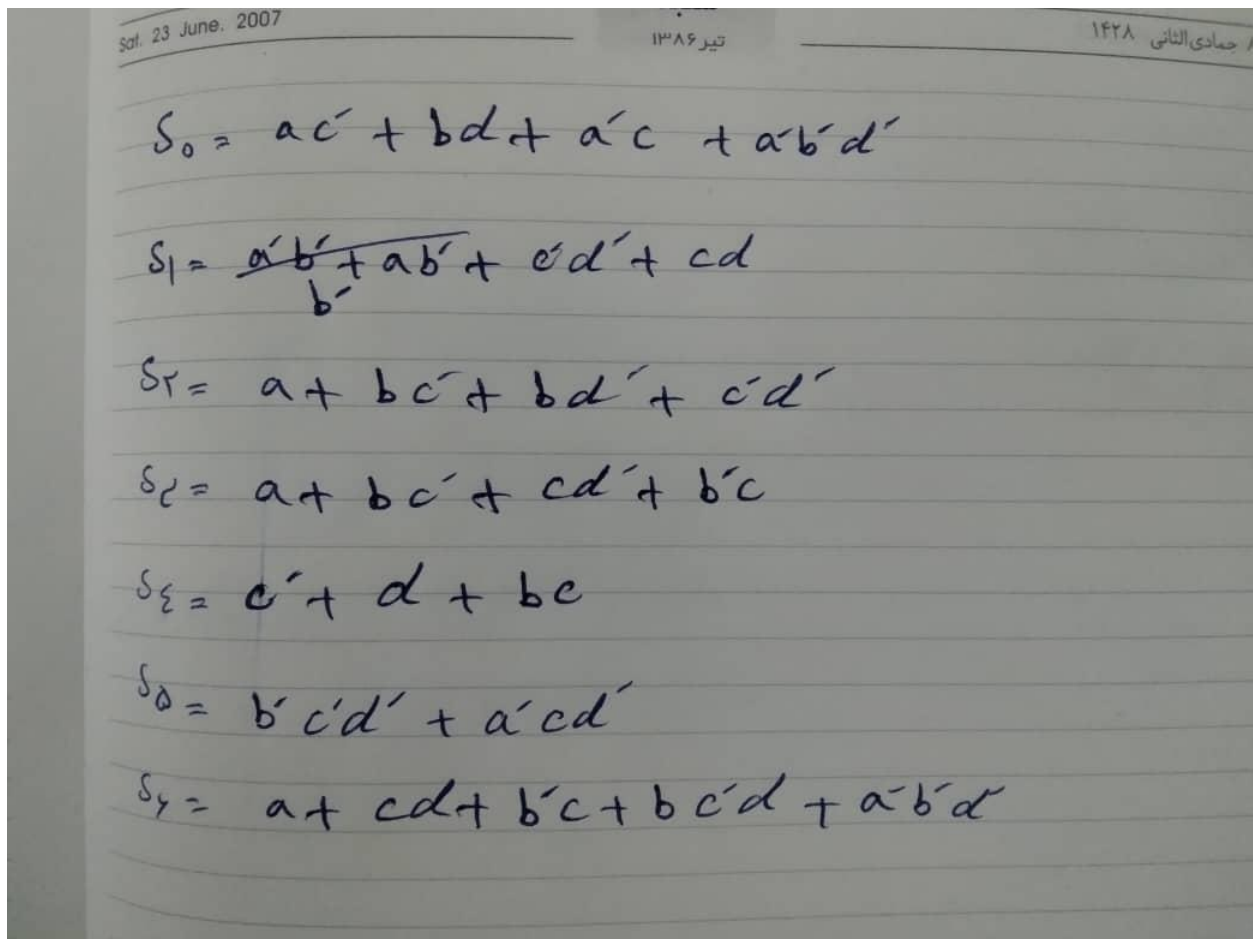 Sat. 23 June. 2007
تیر ۱۳۸۶
جمادی الثانی ۱۴۲۸
S₀ = ac' + bd + a'c + a'b'd'
S۱ = a'b' + ab' + c'd' + cd
b'
S۲ = a + bc' + bd' + c'd'
S۳ = a + bc' + cd' + b'c
S٤ = c' + d + bc
S۵ = b'c'd' + a'cd'
S۶ = a + cd + b'c + bc'd + a'b'd'